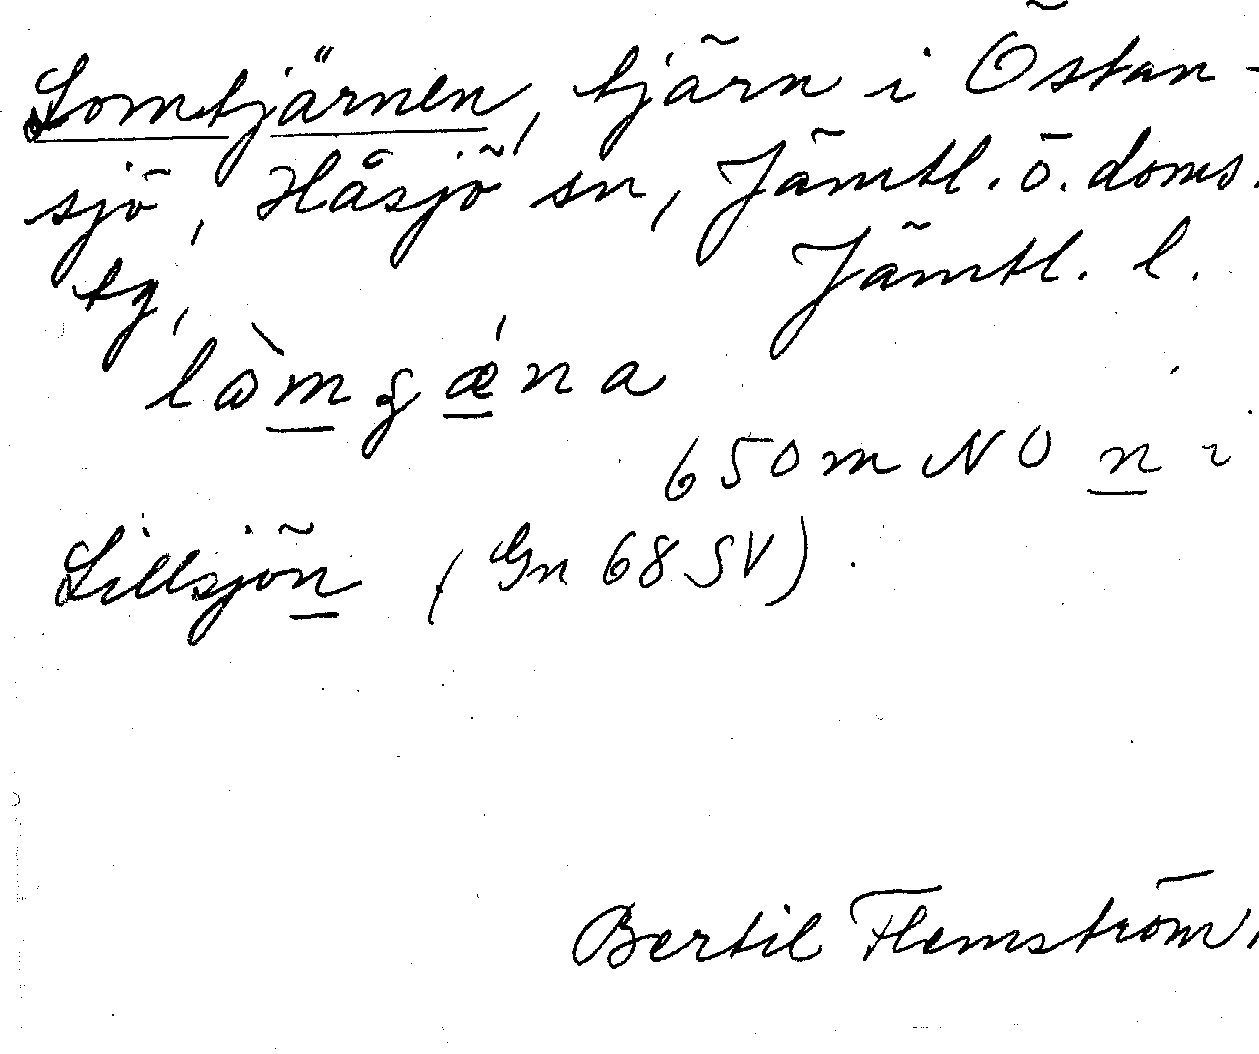 Lomtjärnen, tjärn i Östan-
sjö, Håsjö sn, Jämtl. ö. doms.
tg, Jämtl. l.
lòmgǽna
650 m NO n i
Lillsjön (Gn 68 SV).
Bertil Flemström,